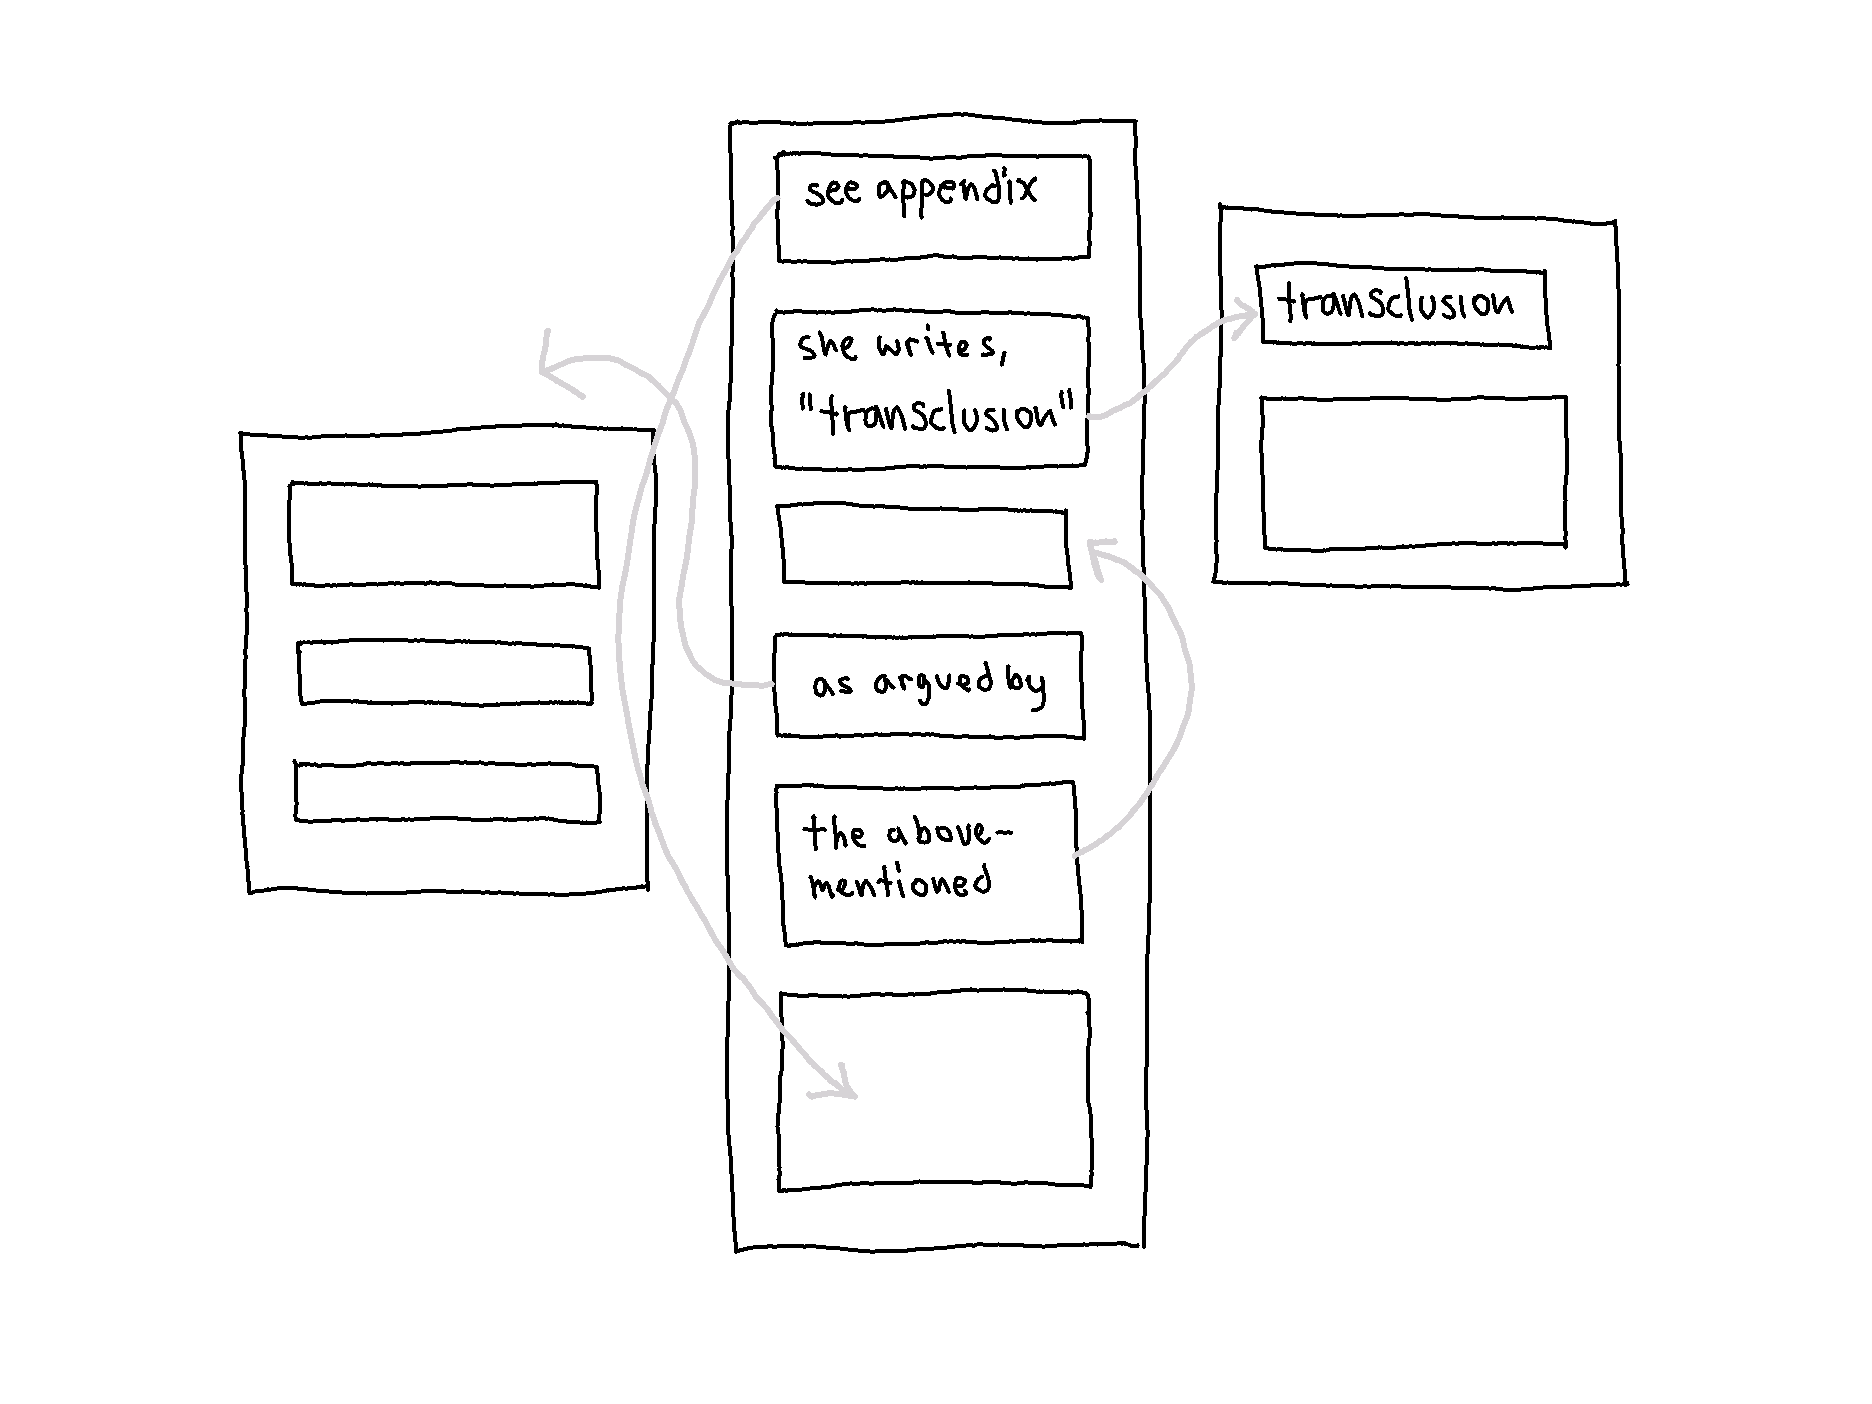 see appendix
she writes,
"transclusion"
as argued by
the above-
mentioned
transclusion